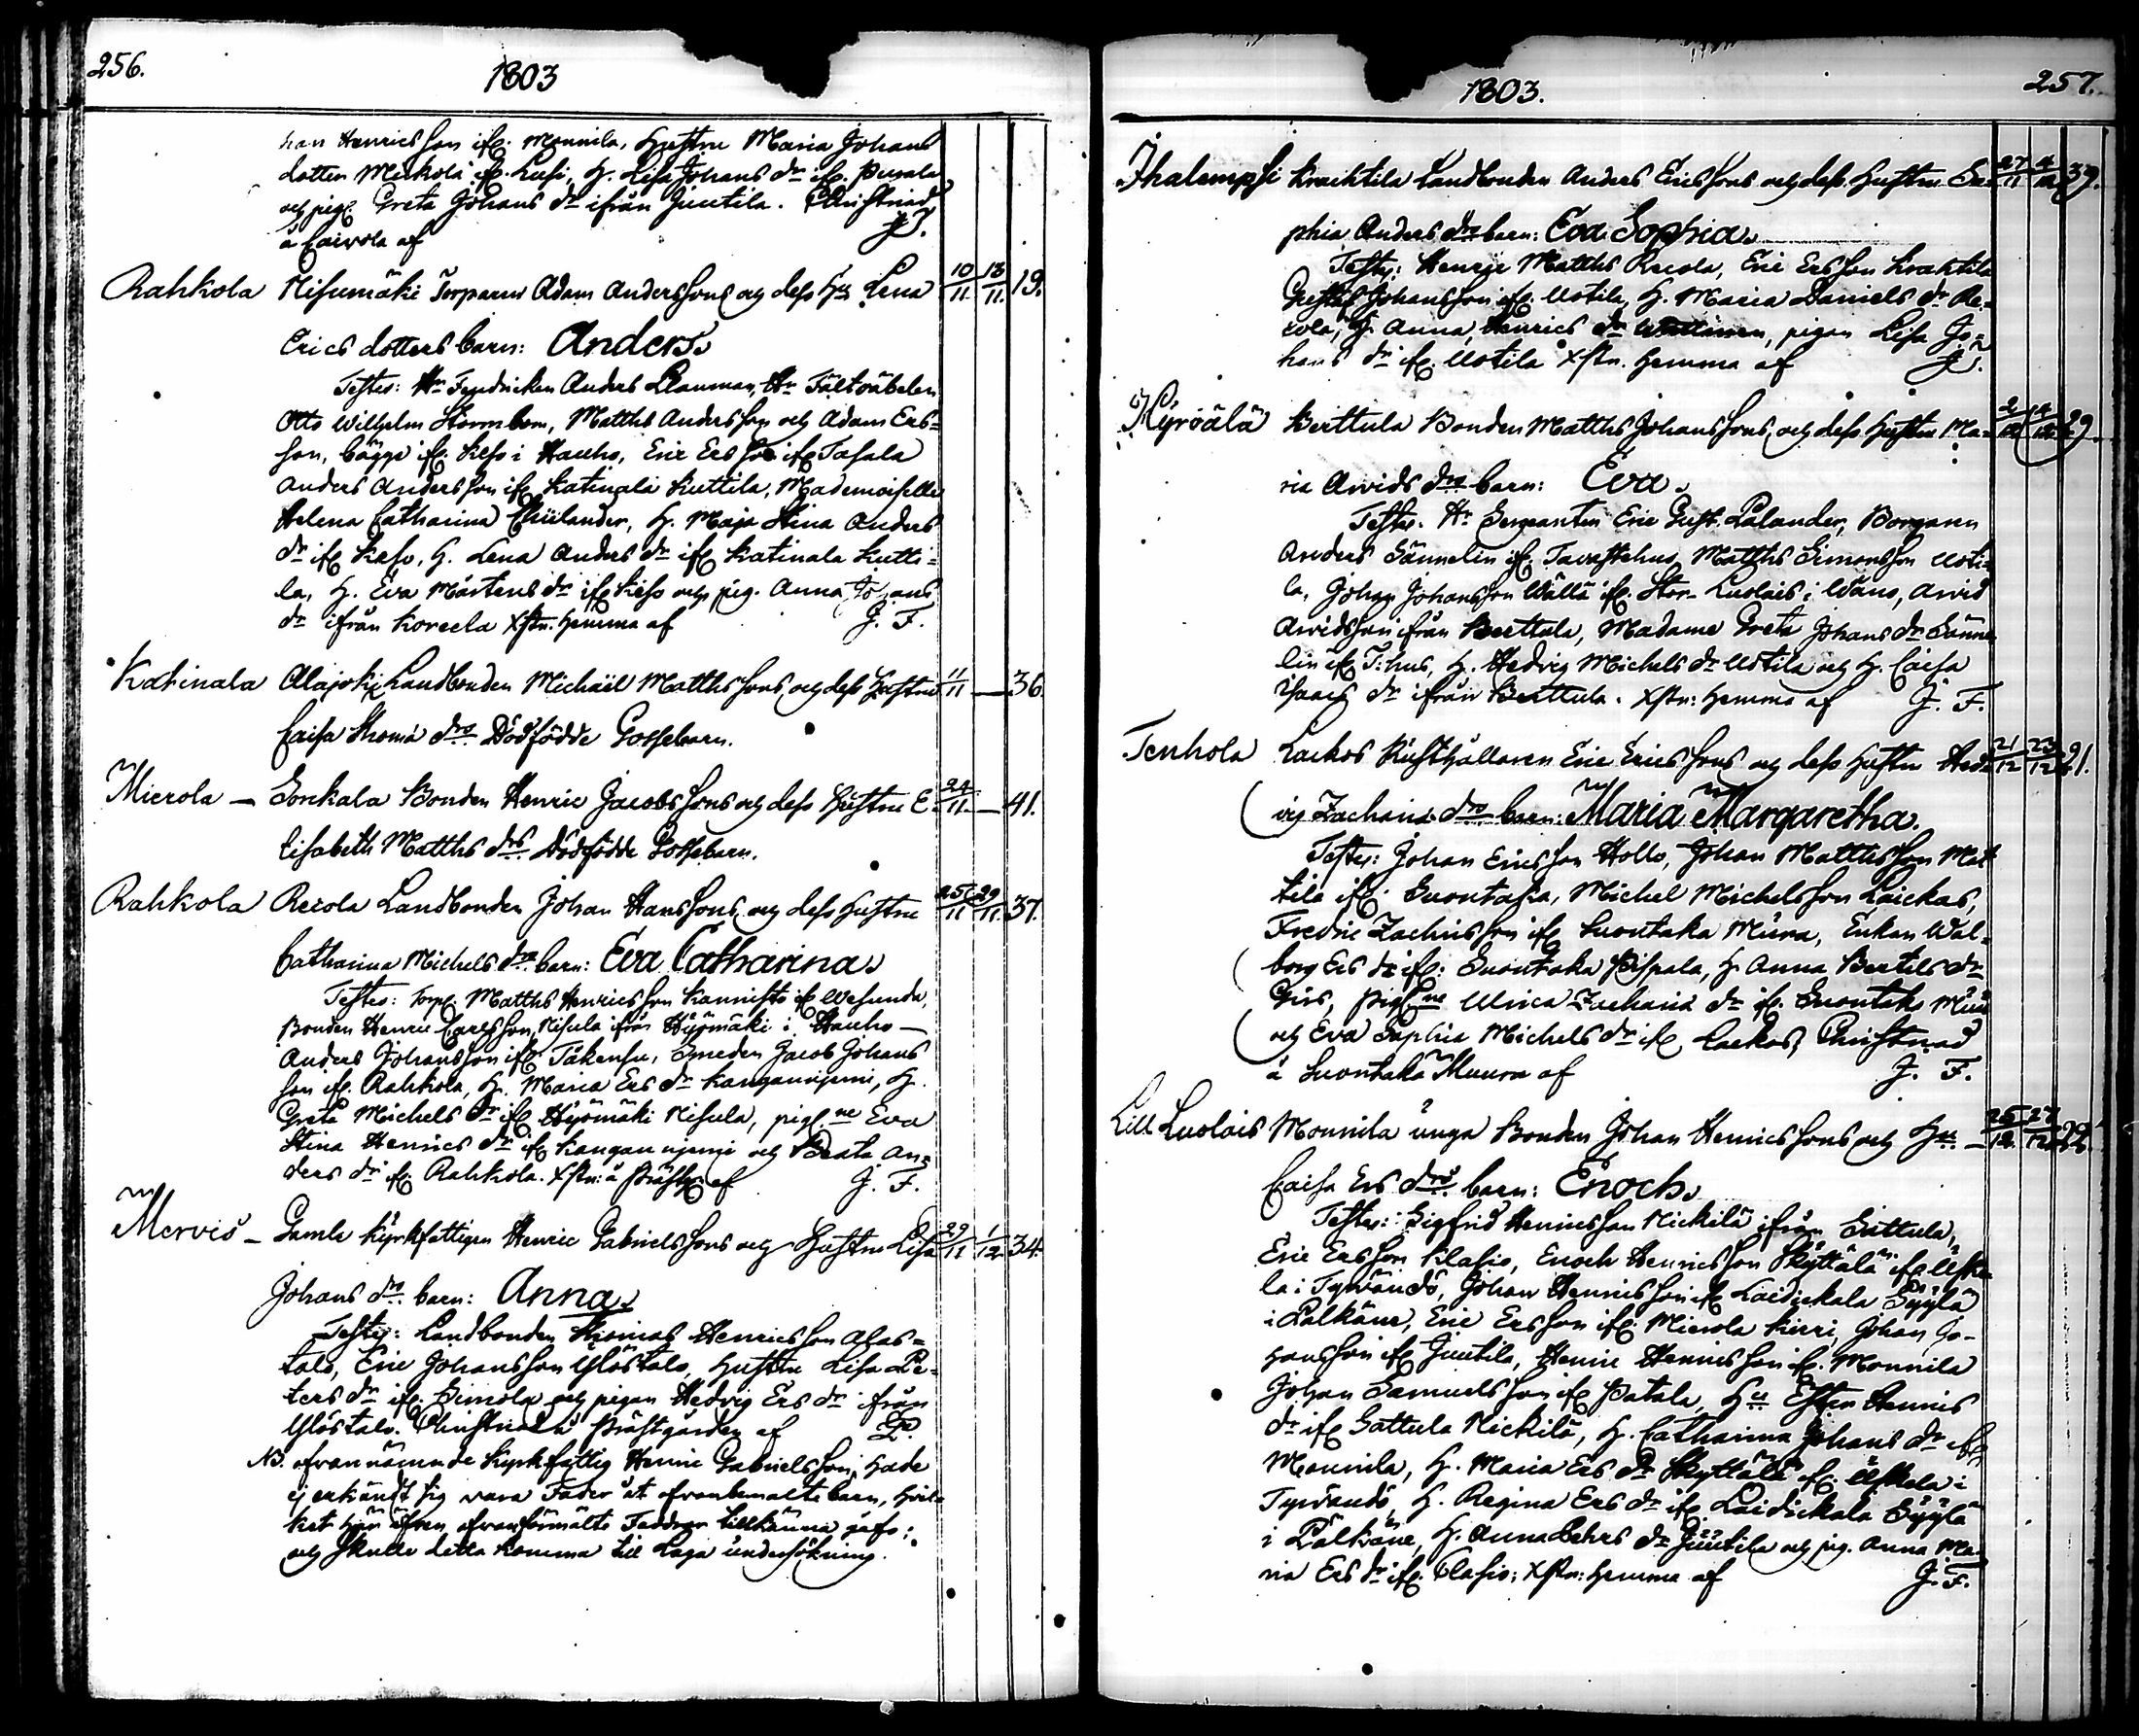 256.
1803
han Henricsson ifr. Monnila, Hustru Maria Johans
dotter Mickola ifr. Lusi, H. Lisa Johans dr ifr.
och pig. Greta Johans dr ifrån Juutila. Christnad
å Cairola af
Rahkola Nisumäki Torparen Adam Anderssons och dess Hu Lena 10/11 13/11 19.
Erics dotters barn: Anders
Testes: Hr Fendricken Anders Clauman, Hr Fältväbelen
Otto Wilhelm Stormbom, Matths Andersson och Adam Ers=
son, bägge ifr. Keso i Hauho, Eric Ersson ifr. Tasala
Anders Andersson ifr. Katinala Kuttila, Mademoiselle
Helena Catharina, H. Maja Stina Anders
dr ifr. Keso, H. Lena Anders dr ifr. Katinala Kutti=
la, H. Eva Mårtens dr ifr. Keso och pig. Anna Johans
dr ifrån Koreela Xstn. hemma af J. F.
Katinala Alajoki Landbonden Michaël Matthssons och dess Hustru 11/11 — 36.
Caisa Thomæ drs Dödfödde Gossebarn.
Mierola — Sonkala Bonden Henric Jacobssons och dess Hustru E- 24/11 — 41.
lisabeth Matths drs Dödfödde Gossebarn.
Rahkola Recola Landbonden Johan Hanssons och dess Hustru 25/11 29/11 37.
Catharina Michels drs barn: Eva Catharina
Testes: Torp. Matths Henricsson Kannisto ifr. Wesunda,
Bonden Henric Carlsson Nisula ifrån Hyömäki i Hauho —
Anders Johansson ifr. Täkensu, Smeden Jacob Johans
son ifr. Rahkola, H. Maria Ers dr Kanganniemi, H.
Greta Michels dr ifr. Hyömäki Nisula, pigne Eva
Stina Henrics dr ifr. Kanganniemi och Beata An=
ders dr ifr. Rahkola. Xstn: å Prästg. af J. F.
Mervis — Gamla Kyrkfattigen Henric Gabrielssons och Hustru Lisa 29/11 1/12 34.
Johans drs barn: Anna
Testes: Landbonden Thomas Henricsson Alas=
talo, Eric Johansson Ylöstalo, Hustru Lisa Pe=
ters dr ifr. Simola och pigan Hedvig Ers dr ifrån
Ylöstalo. Christnad å Prästgården af
NB. ofvannämnde Kyrkfattig Henric Gabrielsson, hade
ej erkändt sig vara Fader åt ofvanbemälte barn, hvil=
ket här äfven ofvanförmälte Faddrar tillkänna gafs;
och skulle detta komma till Laga undersökning.
1803.
257.
Ihalempsi Krachtila Landbonden Anders Ericssons och dess Hustru So= 27/11 4/12 39.
phia Anders drs barn: Eva Sophia
Testes: Henric Matths Recola, Eric Ersson Krachtila
Gustaf Johansson ifr. Uotila, H. Maria Daniels dr Re=
cola, H. Anna Henrics dr, pigan Lisa Jo=
hans dr ifr. Uotila Xstn. hemma af
Hyrvälä Berttula Bonden Matths Johanssons och dess Hustru Ma= 2/12 4/12 29.
ria Arvids drs barn: Eva
Testes. Hr Sergeanten Eric Gust. Palander, Borgaren
Anders Sännelin ifr. Tavastehus, Matths Simonsson Uoti=
la, Johan Johansson Wällä ifr. Stor-Luolais i Wåno, Arvid
Arvidsson ifrån Berttula, Madame Greta Johans dr Sänne
lin ifr. T:hus, H. Hedvig Michels dr Uotila och H. Caisa
Isaacs dr ifrån Berttula. Xstn: hemma af J. F.
Tenhola Laekos Rusthållaren Eric Ericssons och dess Hustru Hed= 21/12 23/12 21.
vig Zachariæ drs barn: Maria Margaretha.
Testes: Johan Ericsson Hollo, Johan Matthsson Mat
tila ifr. Suontaka, Michel Michelsson Laickas,
Fredric Zachrisson ifr. Suontaka Muura, Enkan Wal=
borg Ers dr ifr. Suontaka Pispala, H. Anna Bertils dr
pigne Ulrica Zachariæ dr ifr. Suontaka Muura
och Eva Sophia Michels dr ifr. Laekos, Christnad
å Suontaka Muura af J. F.
Lill Luolais Monnila unga Bonden Johan Henricssons och Hu — 25/12 27/12 22.
Caisa Ers drs barn: Enoch
Testes: Sigfrid Henricsson Nickilä ifrån Sattula,
Eric Ersson Klasio, Enoch Henricsson Skyttälä ifr. Uske=
la i Tyrvändö, Johan Henricsson ifr. Laidickala Syylä
i Pälkäne, Eric Ersson ifr. Mierola Kirri, Johan Jo-
hansson ifr. Juutila, Henric Henricsson ifr. Monnila
Johan Samuelsson ifr. Patala, Hu Ester Henrics
dr ifr. Sattula Nickilä, H. Catharina Johans dr ifr.
Monnila, H. Maria Ers dr Skyttälä ifr. Uskela i
Tyrvändö, H. Regina Ers dr ifr. Laidickala Syylä
i Pälkäne, H. Anna dr Juutila och pig. Anna Ma=
ria Ers dr ifr. Klasio; Xstn: hemma af J. F.